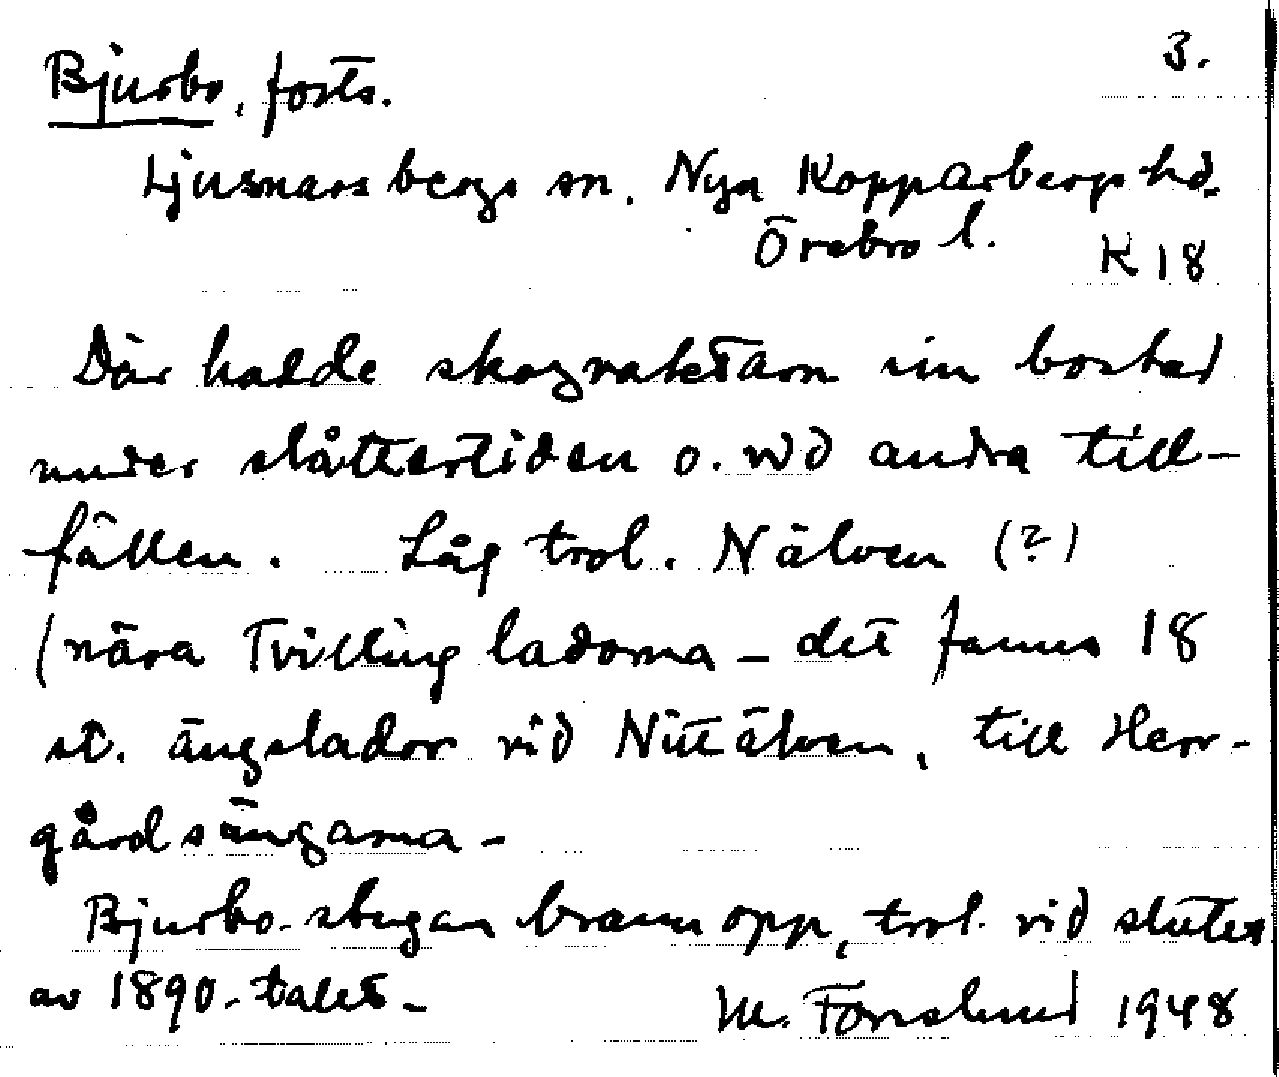 3.
Bjurbo, forts.
Ljusnarsbergs sn. Nya Kopparbergs hd.
Örebro l. K 18
Där hadde skogvaktarn sin bostad
under slåttertiden o. vid andra till-
fällen. Låg trol. Nälven (?)
(nära Tvillingladorna - det fanns 18
st. ängslador vid Nittälven, till Herr-
gårdsängarna -
Bjurbo-stugan brann opp, trol. vid slutet
av 1890-talet -
M. Fornslund 1948